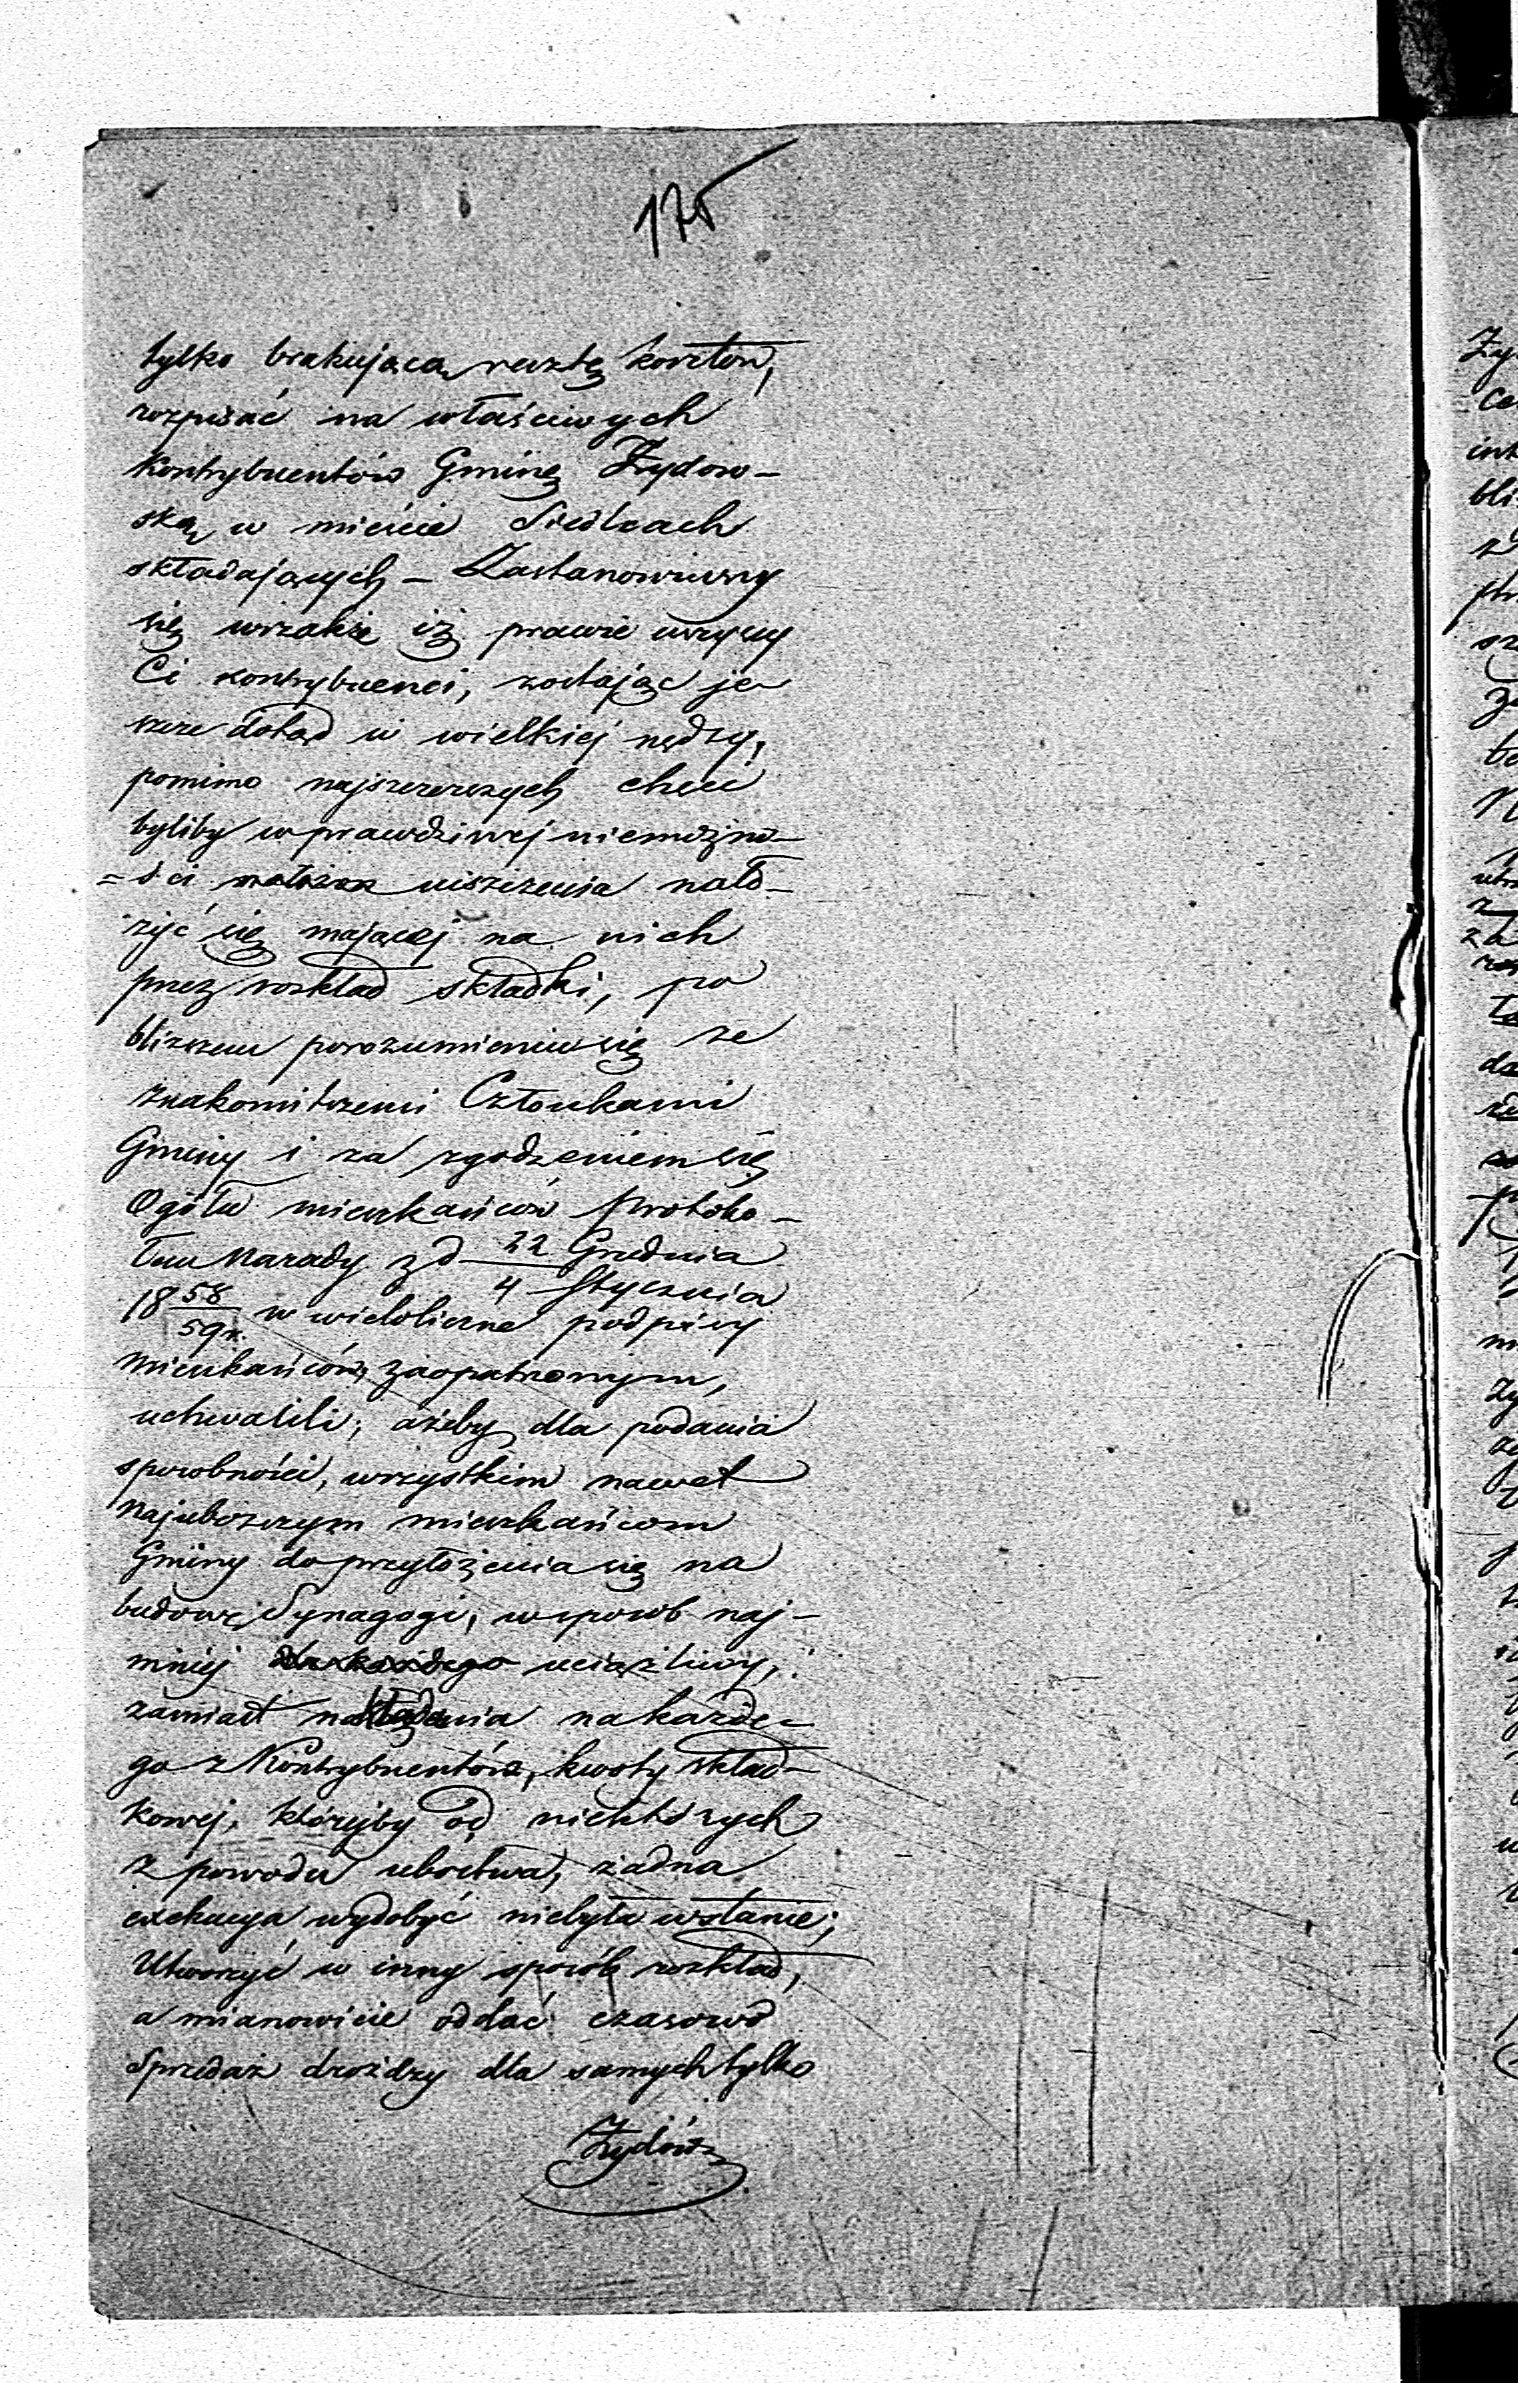 175
tylko brakującą resztę kosztów,
rozpisać na właściwych
Kontrybuentów Gminę Żydow-
ską w mieście Siedlcach
składających – Zastanowiwszy
się wszakże iż prawie wszyscy
Ci kontrybuenci, zostając je-
szcze dotąd w wielkiej nędzy,
pomimo najszczerszych chęci
byliby w prawdziwej niemożno-
=ści uiszczenia nało-
żyć się mającej na nich
przez rozkład składki, po
bliższem porozumieniu się ze
znakomitszemi Członkami
Gminy i za zgodzeniem się
Ogółu mieszkańców protoko-
łem Narady z d 22 Grudnia
4 Stycznia
18 58 w wieloliczne podpisy
59 r.
Mieszkańców zaopatrzonym,
uchwalili; ażeby dla podania
sposobności, wszystkim nawet
najuboższym mieszkańcom
Gminy do przyłożenia się na
budowę Synagogi, w sposób naj-
mniej uciążliwy,
zamiast nakładania na każde-
go z Kontrybuentów, kwoty skład-
kowej, któréjby od niektórych
z powodu ubóstwa, żadna
exekucya wydobyć niebyła wstanie;
Utworzyć w inny sposób rozkład,
a mianowicie oddać czasowo
Sprzedaż drożdży dla samych tylko
Żydów